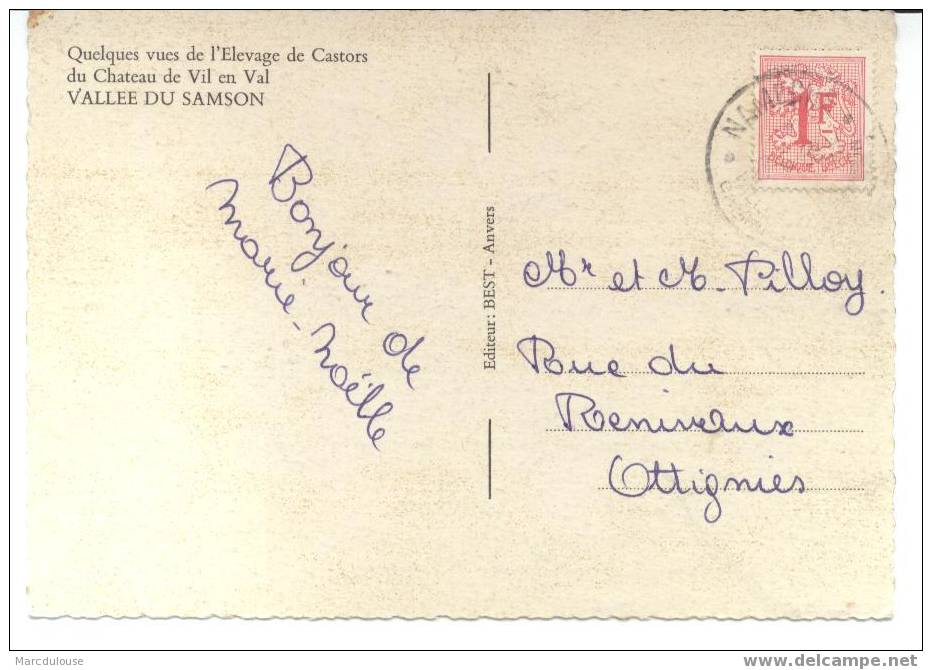 Quelques vues de l'Elevage de Castors
du Chateau de Vil en Val
VALLEE DU SAMSON
Bonjour de
Marie-Noëlle
Editeur: BEST - Anvers
1F
BELGIQUE BELGIE
Mr et M. Pilloy.
Rue du
Reniveaux
Ottignies
Marcdulouse
delcampe.net